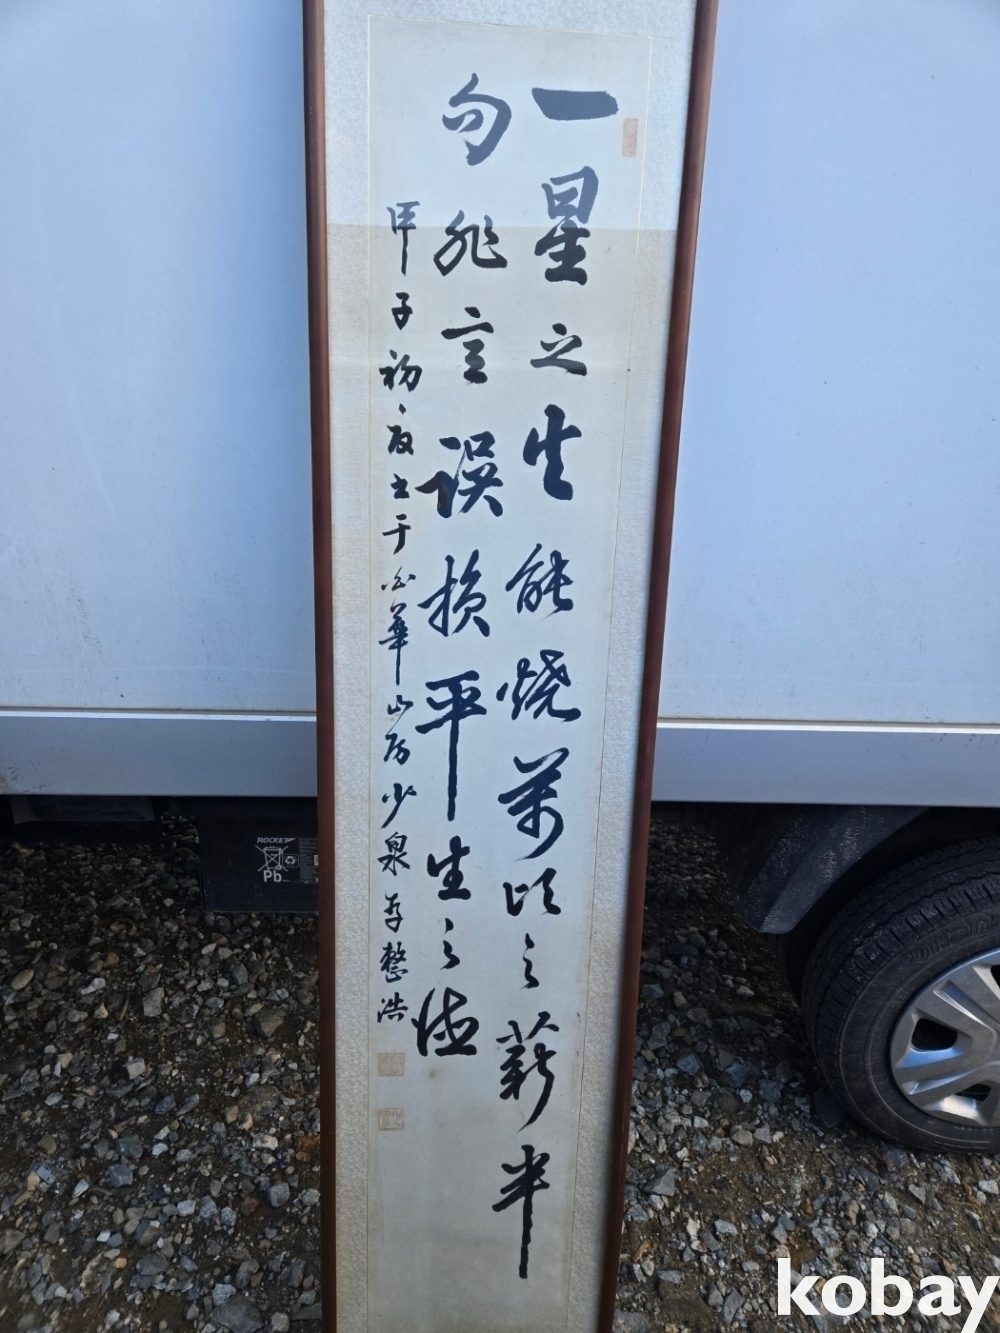 一星之火能燒萬頃之薪半
句非言誤損平生之德
甲子初夏書于白華山房少泉李整浩
ROCKET
Pb
kobay